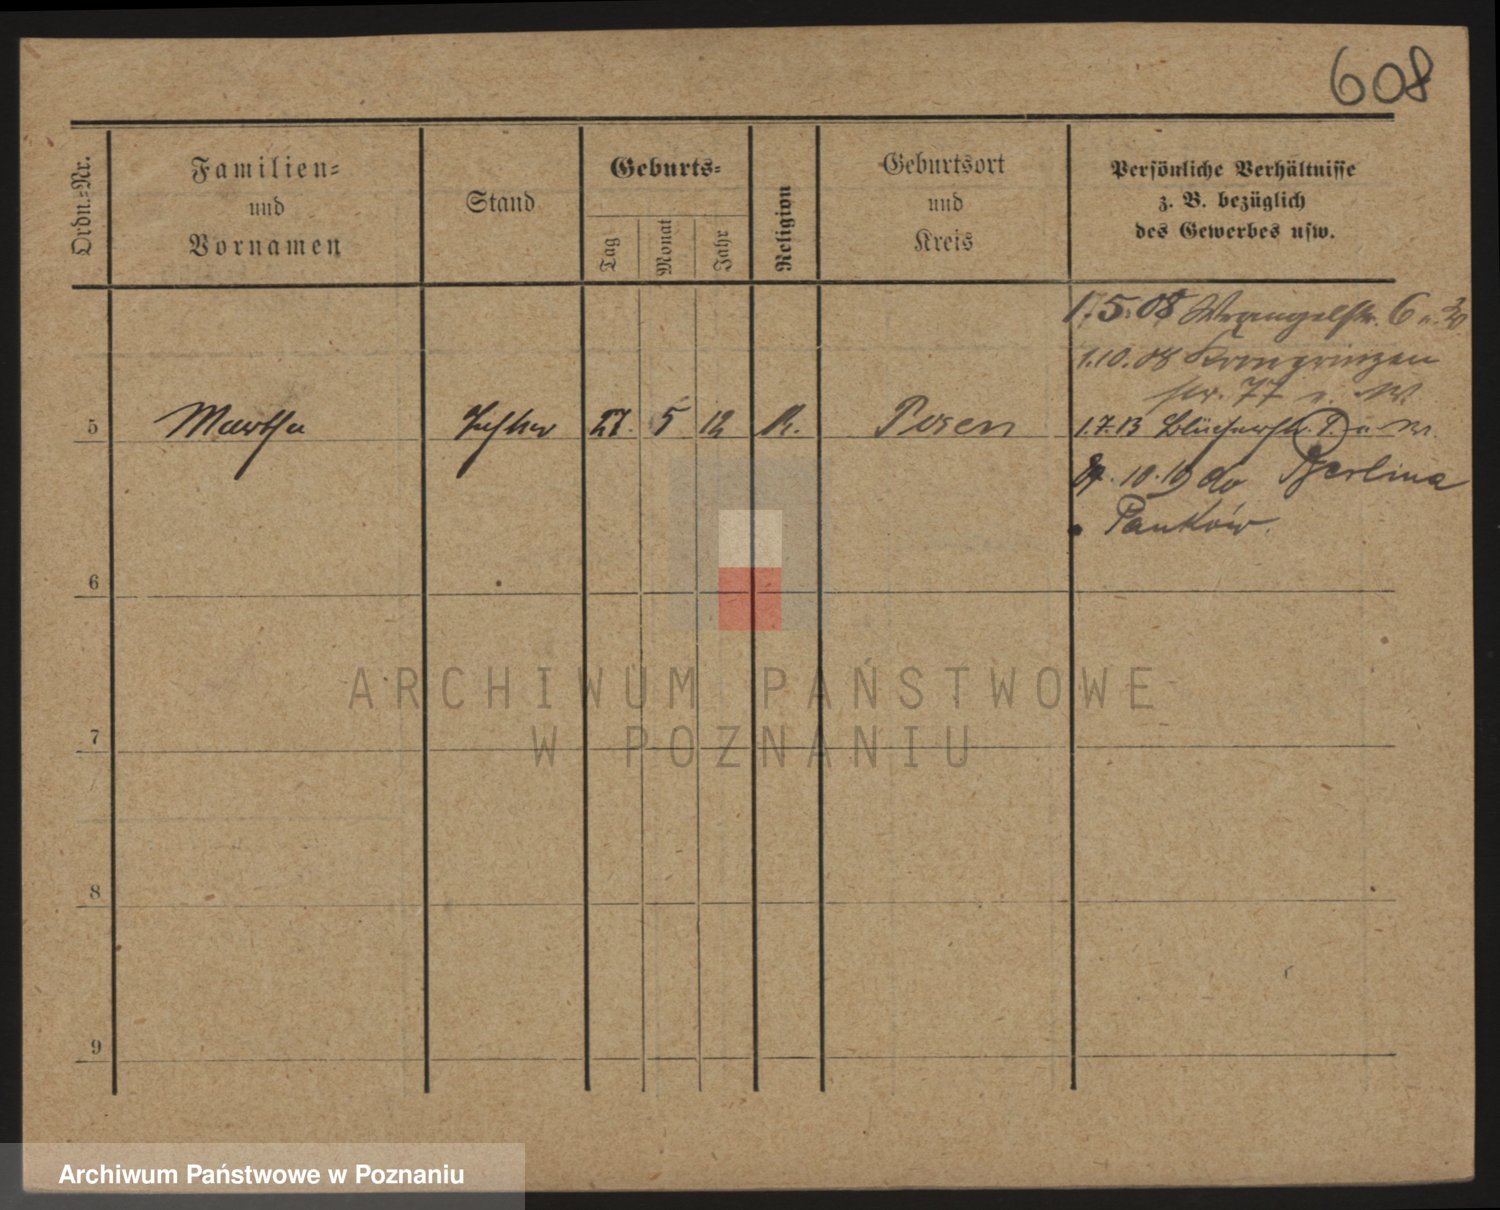 608
Ordn.=Nr.
Familien=
und
Vornamen
Stand
Geburts=
Tag
Monat
Jahr
Religion
Geburtsort
und
Kreis
Persönliche Verhältnisse
z. B. bezüglich
des Gewerbes usw.
1.5.08 Wrangelstr. 6
1.10.08 Kronprinzen
str. 77
5 Martha Tochter 27. 5 12 K. Posen
1.7.13 Blücherstr.
10.19 do Berlina
Panków.
6
7
8
9
ARCHIWUM PAŃSTWOWE
W POZNANIU
Archiwum Państwowe w Poznaniu